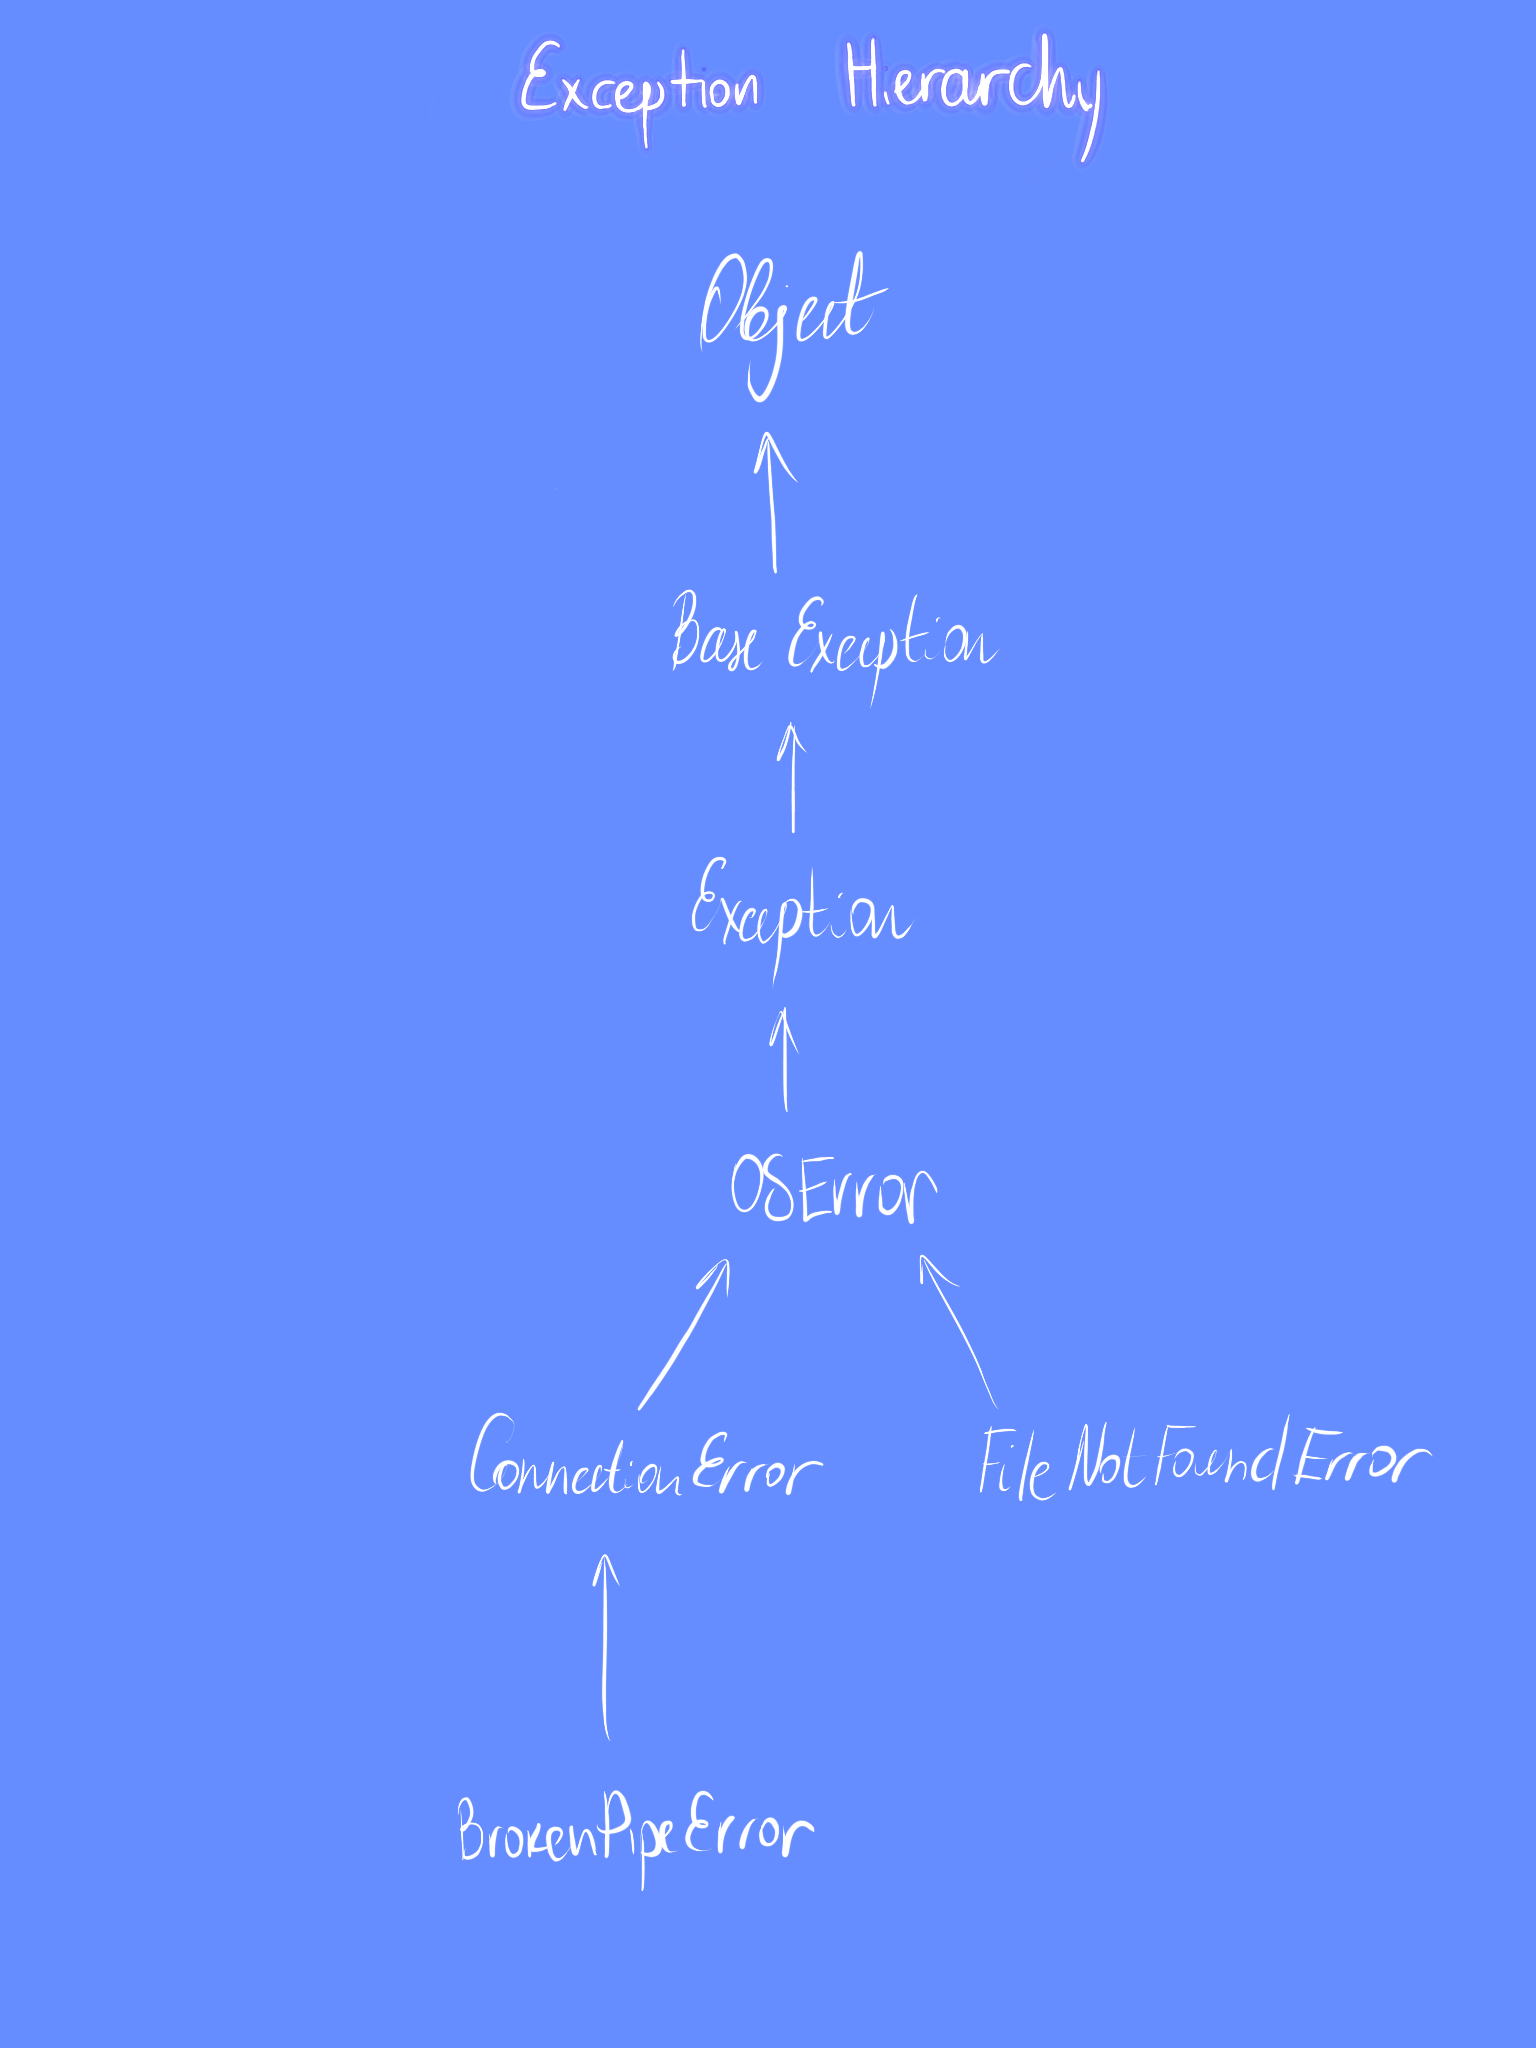 Exception Hierarchy
Object
Base Exception
Exception
OSError
ConnectionError FileNotFoundError
BrokenPipeError